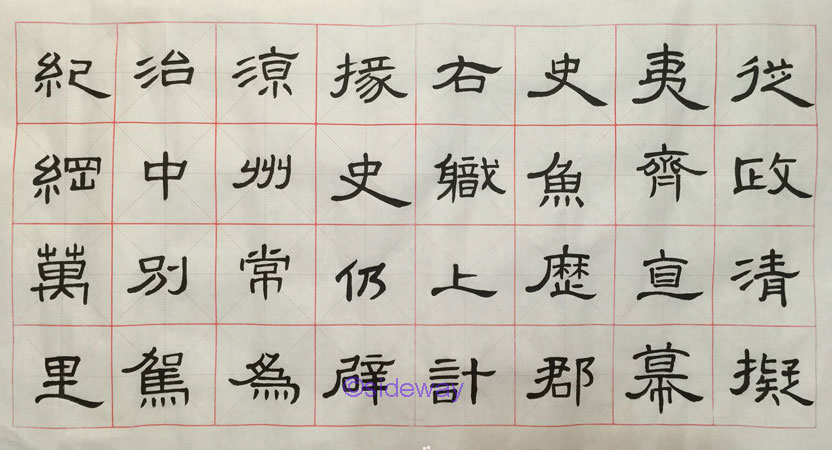 從政清擬
夷齊直慕
史魚歷郡
右職上計
掾史仍辟
涼州常為
治中別駕
紀綱萬里
©sideway